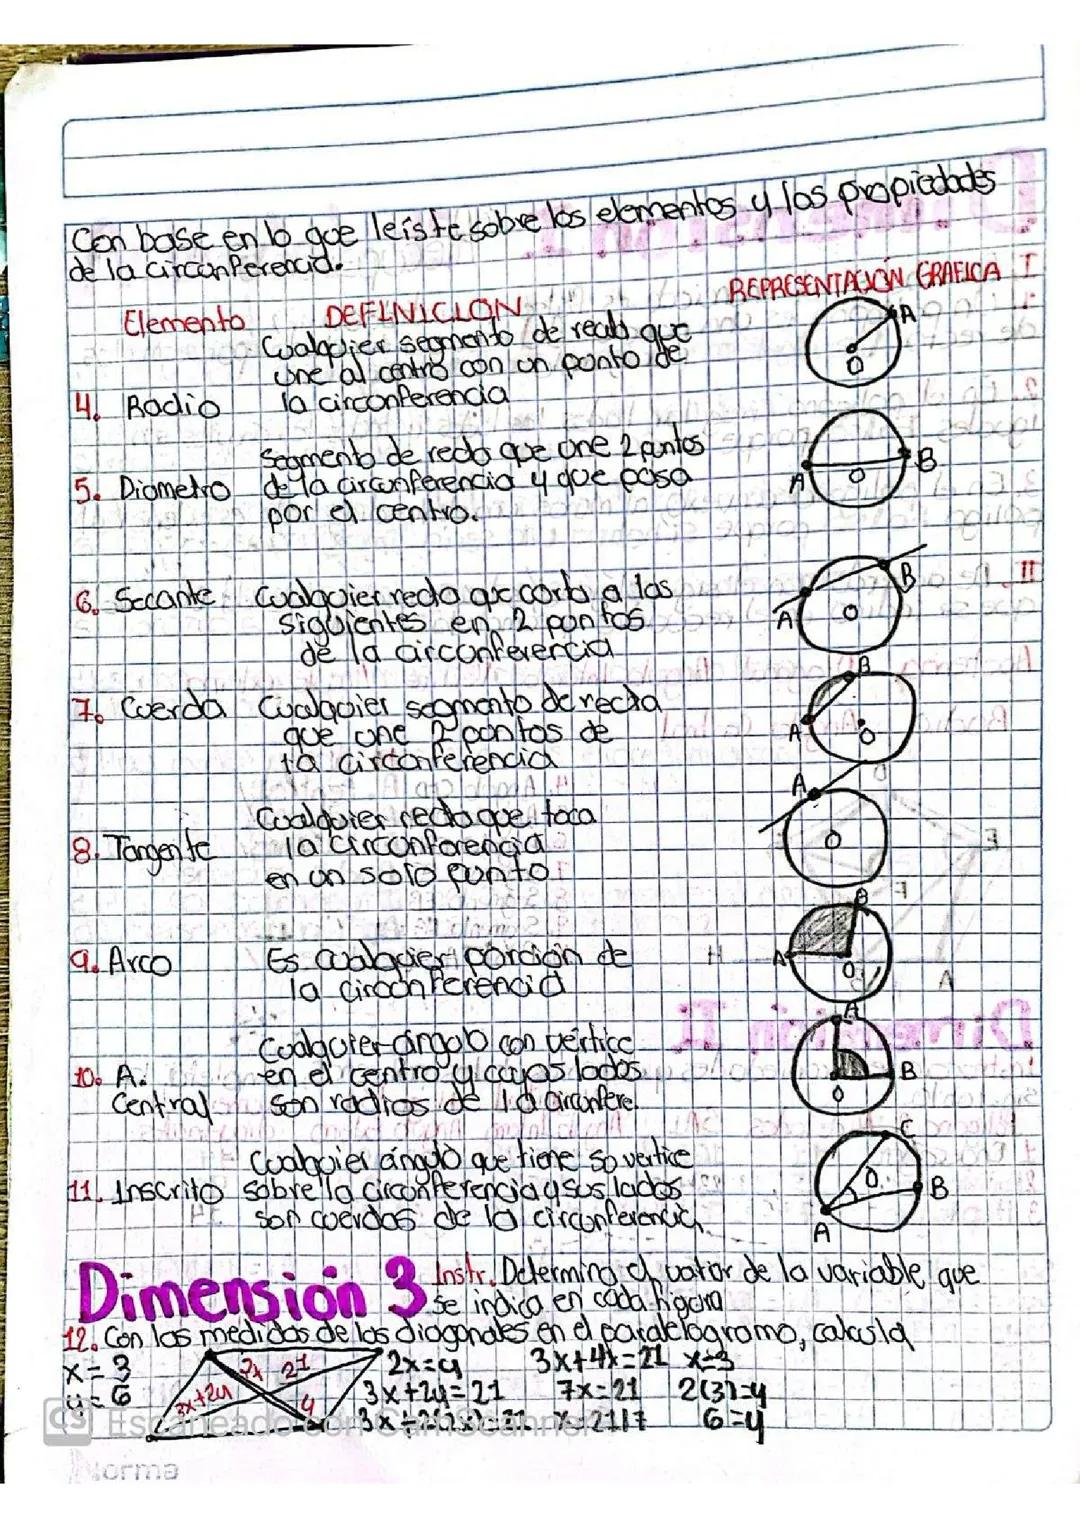 Con base en lo que leíste sobre los elementos y las propiedades
de la circunferencia.
Elemento DEFINICION REPRESENTACIÓN GRAFICA
Cualquier segmento de recta que
une al centro con un punto de
4. Radio la circonferencia
A
O
Segmento de recta que une 2 puntos
5. Diametro de la circunferencia y que pasa
por el centro.
A O B
6. Secante Cualquier recta que corta a las
siguientes en 2 puntos
de la circunferencia
A O B
7. Cuerda Cualquier segmento de recta
que une 2 pontos de
la circonferencia
B
A O
Cualquier recta que toca
8. Tangente la circonferencia
en un solo punto
A
O
9. Arco Es cualquier porción de
la circonferencia
B
A O
Cualquier ángulo con vértice
10. A. en el centro y cuyos lados
Central son radios de la circunfere.
A
O B
Cualquier ángulo que tiene su vertice
11. Inscrito sobre la circonferencia y sus lados
son cuerdas de la circunferencia
C
O B
A
Dimensión 3 Instr. Determina el valor de la variable que
se indica en cada figura
12. Con las medidas de las diagonales en el paralelogramo, calcula
x=3 2x 21 2x=y 3x+4x=21 x=3
y=6 3x+2y y 3x+2y=21 7x=21 2(3)=y
3x+2(2x)=21 x=21/7 6=y
CS Escaneado con CamScanner
Norma